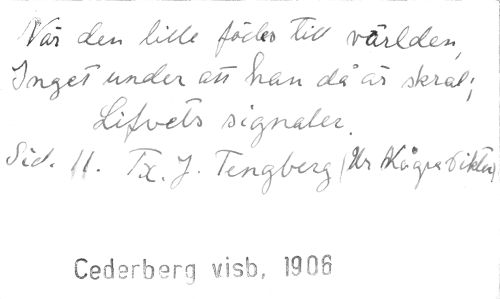 När den lille födes till världen,
Inget under att han då är skral;
Lifvets signaler.
Sid. 11. Tx. J. Tengberg (Ur Några dikter)
Cederberg visb, 1906